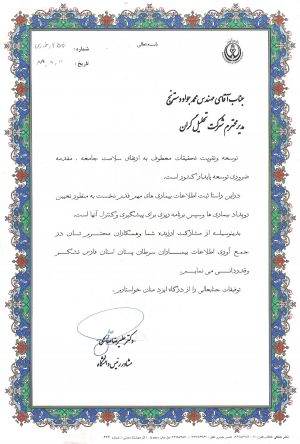 باسمه تعالی
شماره :
تاریخ :
جناب آقای مهندس محمد جواد دسترنج
مدیر محترم شرکت تحلیل گران
توسعه وتقویت تحقیقات معطوف به ارتقای سلامت جامعه ، مقدمه
ضروری توسعه پایدار کشور است.
دراین راستا ثبت اطلاعات بیماری های مهم قدم نخست به منظور تعیین
رویداد بیماری ها وسپس برنامه ریزی برای پیشگیری وکنترل آنها است.
بدینوسیله از مشارکت ارزنده شما وهمکاران محترم تان در
جمع آوری اطلاعات بیماران سرطان پستان استان فارس تشکر
وقدردانی می نمایم.
توفیقات جنابعالی را از درگاه ایزد منان خواستارم.
دکتر علیرضا
مشاور رئیس دانشگاه